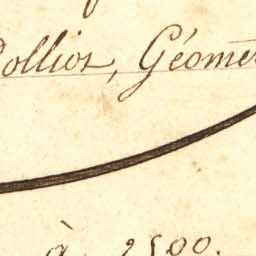 Polliot, Géomet
à 2500.